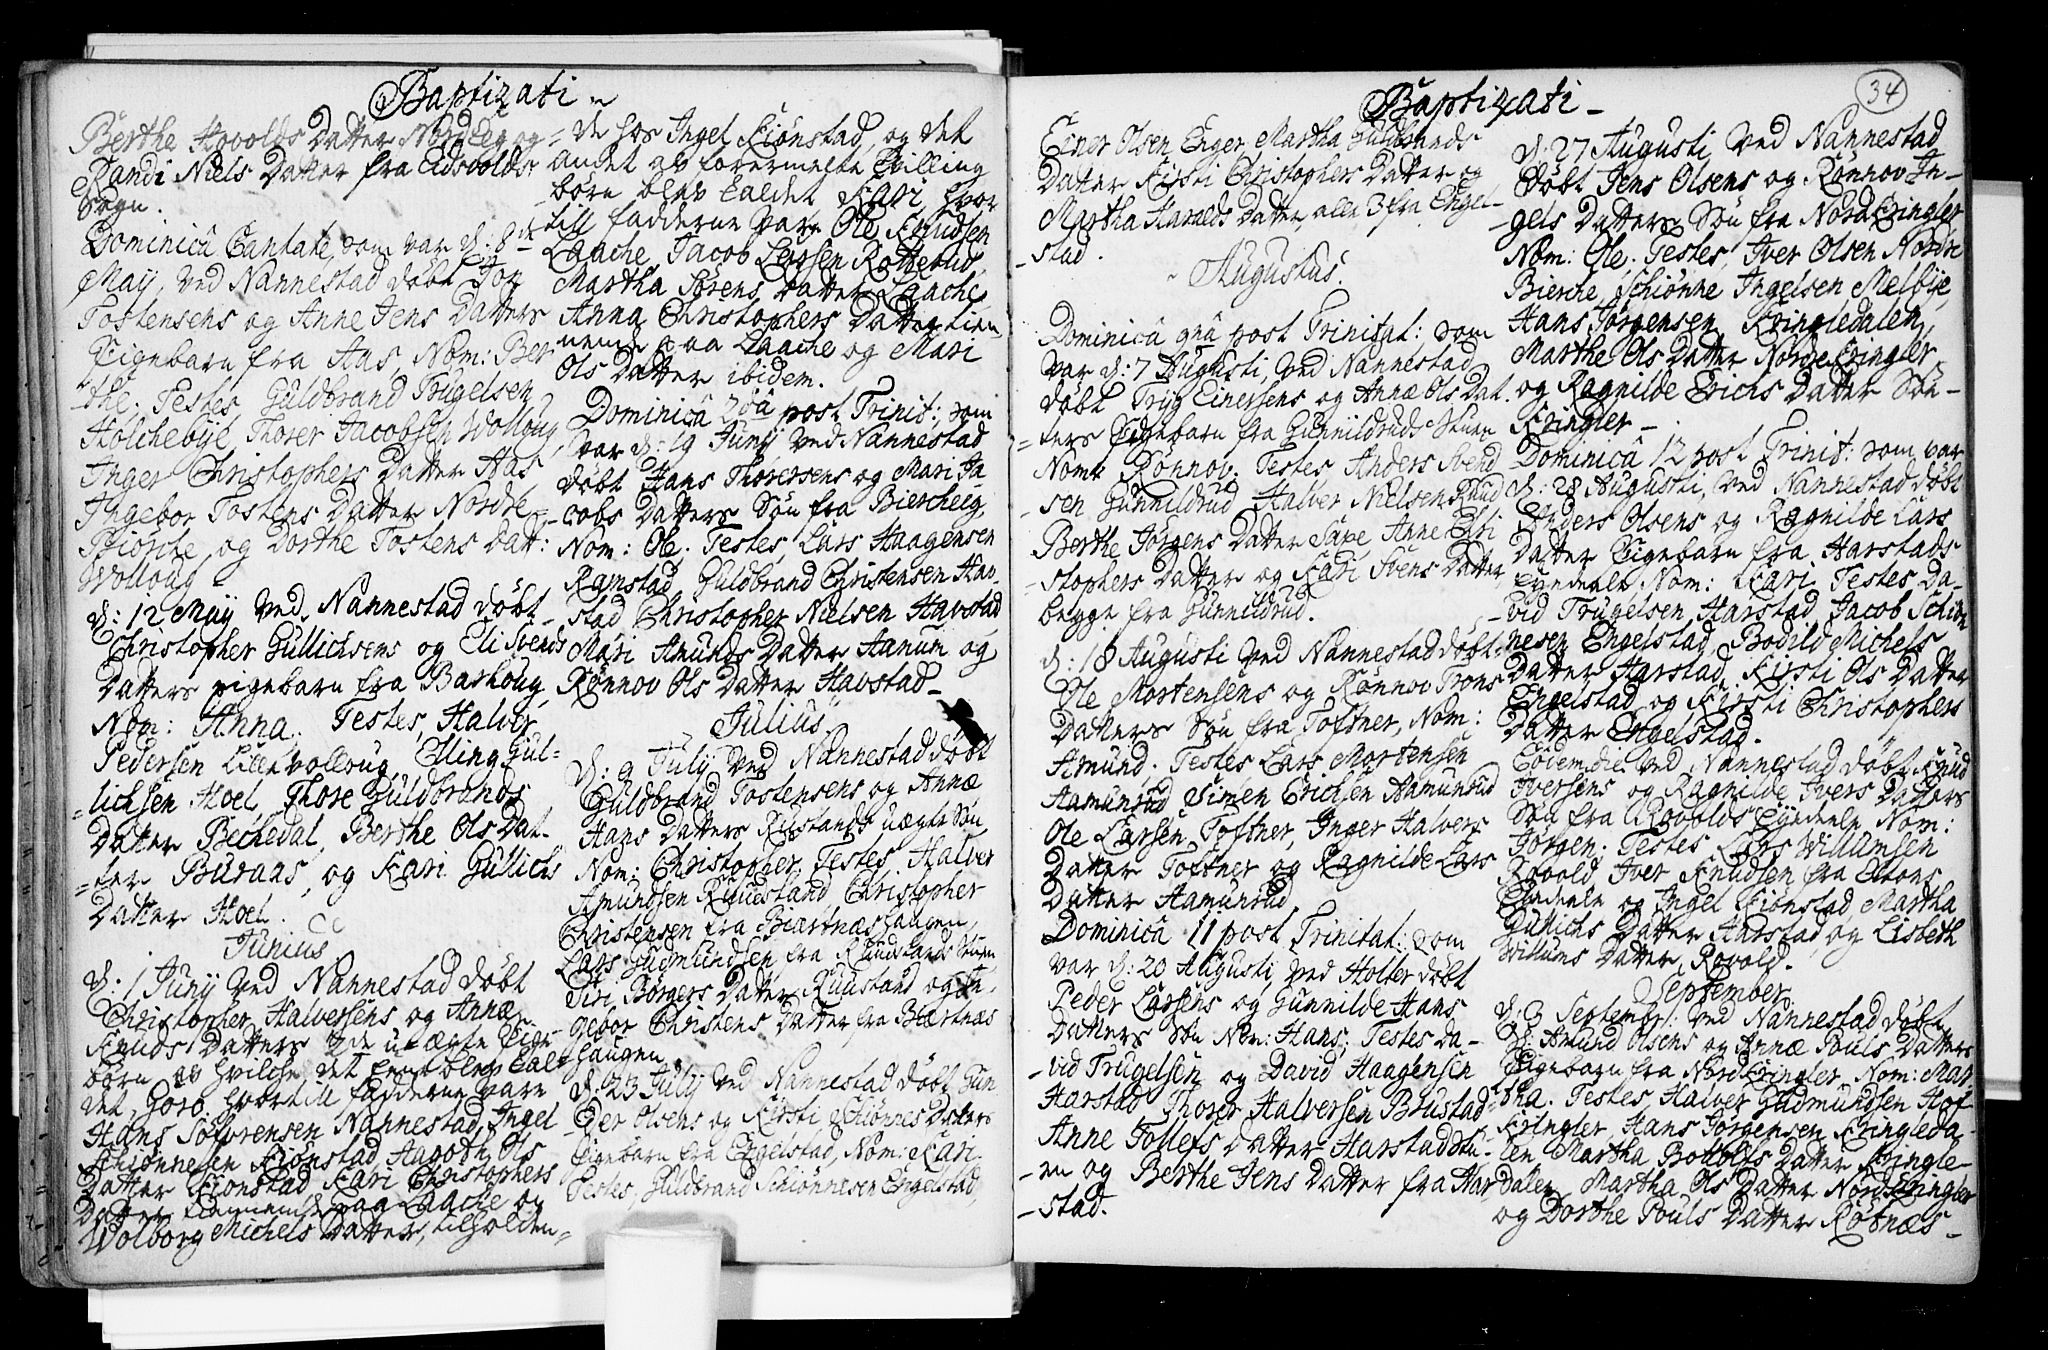 Baptizati
Berthe Hovolds Datter Nordeeg og
Randi Niels Datter fra Eidsvolds
Sogn.
Dominicâ Cantate, som var d: 8de
Maij, ved Nannestad döbt Jon
Tostensens og Anne Jens Datters
Pigebarn fra Aas, Nom: Ber
the. Testes, Guldbrand Trugelsen
Holchebÿe, Thorer Jacobsen Wolloug,
Inger Christophers Datter Aas
Ingebor Tostens Datter Nordre
Biorche og Dorthe Tostens Datt:
Wolloug
d: 12 Maij ved Nannestad döbt
Christopher Gullichsens og Eli Svends
Datters pigebarn fra Bashoug,
Nom: Anna. Testes, Halver
Pedersen Lillevolloug, Elling Gul=
=lichsen Moel, Thore Guldbrands
Datter Bechedal, Berthe Ols Dat=
=ter Buraas, og Kari Gullichs
Datter Moel.
Junius
d: 1 Junij ved Nannestad döbt
Christopher Halversens og Annæ
Knuds Datters 2de uægte Pige
börn, af hvilche det eene blev Cal=
det, Goro, hvortill fadderne vare
Hans Sörensen Nannestad, Ingel
Schiönnesen Kiönstad Aagoth Ols
Datter Kiönstad Kari Christophers
Datter tiennende paa Laache og
Wolborg Michels Datter, tilholden=
=de hos Ingel Kiönstad, og det
andet af forermelte Tvilling
börn blev Caldet Kari, hvor
till fadderne vare Ole Knudsen
Laache, Jacob Larsen Rotterud,
Martha Sörens Datter Laache
Anna Christophers Datter tien
nende paa Laache og Mari
Ols Datter ibidem.
Dominicâ 2dâ post Trinit: som
var d: 19 Junij ved Nannestad
döbt Hans Thorersens og Mari Ja
=cobs Datters Sön fra Biercheeg,
Nom: Ole. Testes, Lars Haagensen
Ramstad, Guldbrand Christensen Hav=
stad Christopher Nielsen Havstad
Mari Amunds Datter Aanum og
Rönnov Ols Datter Havstad
Julius
d: 9 Julij ved Nannestad döbt
Guldbrand Tostensens og Annæ
Hans Datters uægte Sön
Nom: Christopher, Testes, Halver
Amundsen Ruustand, Christopher
Christensen fra Biærtnæs haugen,
Lars Gudmundsen fra
Siri Börgers Datter Ruustand og In=
gebor Christens Datter fra Biærtnæs
haugen
d: 23 Julij ved Nannestad döbt Gun
der Olsens og Kirsti Schiönnes Datters
Pigebarn fra Engelstad, Nom: Kari
Testes, Guldbrand Schiönnesen Engelstad,
34
Baptizati
Einer Olsen Enger, Martha Guldbrands
Datter Kirsti Christophers Datter og
Martha Haralds Datter, alle 3 fra Engel=
=stad.
Augustus.
Dominicâ 9nâ post Trinitat: som
var d: 7 Augusti, ved Nannestad
döbt Tryg Einersens og Annæ Ols Dat.
=ters Pigebarn fra Gunnildruds
Nom: Rönnov. Testes Anders Svend
sen Gunnildrud Halver Nielsen Ruud
Berthe Jörgens Datter Anne Chri
=stophers Datter og Kari Svens Datter
begge fra Gunnildrud.
d: 18 Augusti ved Nannestad döbt
Ole Mortensens og Rönnov Trons
Datters Sön fra Toftner, Nom:
Amund. Testes Lars Mortensen
Aamunrud Simen Erichsen Aamunrud
Ole Larsen Toftner, Inger Halvers
Datter Toftner og Ragnilde Lars
Datter Aamunrud.
Dominicâ 11 post Trinitat: som
var d: 20 Augusti, ved Holter döbt
Peder Larsens og Gunnilde Hans
Datters Sön Nom: Hans; Testes Da=
=vid Trugelsen og David Haagensen
Harstad Thorer Halversen Brustad
Anne Tollefs Datter Harstadstu=
=en og Berthe Jens Datter fra Har
=stad.
d: 27 Augusti, ved Nannestad
döbt Jens Olsens og Rönnov In=
=gels Datters Sön fra Nordkringler
Nom: Ole. Testes, Iver Olsen Nordre
Bierche, Schiönne Ingelsen Melbÿe,
Hans Jörgensen Kringledalen,
Marthe Ols Datter Nordrekringler
og Ragnilde Erichs Datter Sön=
kringler
Dominicâ 12 post Trinit: som var
d: 28 Augusti, ved Nannestad döbt
Anders Olsens og Ragnilde Lars
Datter Pigebarn fra Harstads
Eyedeele, Nom: Kari. Testes Da=
=vid Trugelsen, Harstad, Jacob Schiön
nesen Engelstad, Bodild Michels
Datter Harstad, Kirsti Ols Datter
Engelstad og Kirsti Christophers
Datter Engelstad.
Eodem die ved Nannestad döbt Knud
Iversens og Ragnilde Ivers Datters
Sön fra Rovolds Eyedeele Nom:
Jörgen. Testes Lars Willumsen
Rovold Iver Knudsen fra
Eyedeele og Ingel Kiönstad, Martha
Gullichs Datter Harstad, og Lisbeth
Willums Datter Rovold.
September
d: 3 Septembr: ved Nannestad döbt
Amund Olsens og Annæ Pouls Datters
Pigebarn fra Nordkringler, Nom: Mar
tha. Testes Halver Gudmundsen Hof
kringler, Hans Jörgensen Kringleda=
len Martha Botolfs Datter Kringle=
dalen, Martha Ols Datter Nordkringler
og Dorthe Pouls Datter Rötnæs